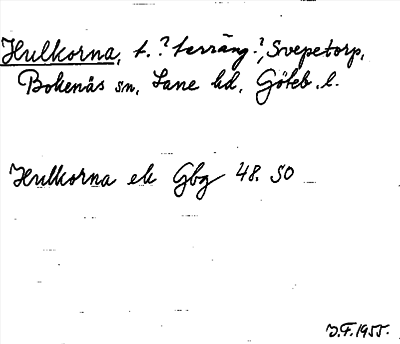 Hulkorna, t. ? terräng. ?, Svepetorp,
Bokenäs sn, Lane hd, Göteb. l.
Hulkorna ek Gbg 48. SO
J.F. 1955.